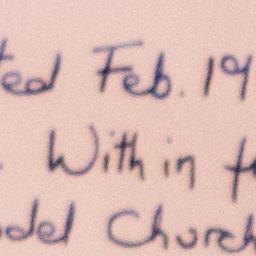 ted Feb. 19
. With in
del Church